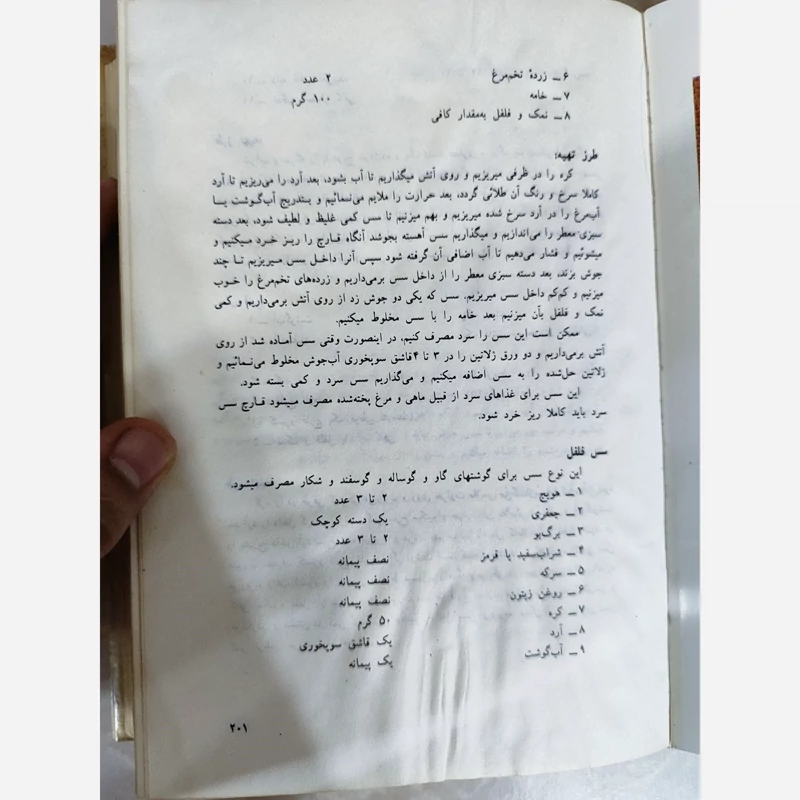 ۶ــ زردهٔ تخم‌مرغ ۲ عدد
۷ــ خامه ۱۰۰ گرم
۸ــ نمک و فلفل به‌مقدار کافی
طرز تهیه:
کره را در ظرفی میریزیم و روی آتش میگذاریم تا آب بشود، بعد آرد را می‌ریزیم تا آرد
کاملا سرخ و رنگ آن طلائی گردد، بعد حرارت را ملایم می‌نمائیم و بتدریج آب‌گوشت یا
آب‌مرغ را در آرد سرخ شده میریزیم و بهم میزنیم تا سس کمی غلیظ و لطیف شود، بعد دسته
سبزی معطر را می‌اندازیم و میگذاریم سس آهسته بجوشد آنگاه قارچ را ریز خرد میکنیم و
میشوئیم و فشار می‌دهیم تا آب اضافی آن گرفته شود سپس آنرا داخل سس میریزیم تا چند
جوش بزند، بعد دسته سبزی معطر را از داخل سس برمی‌داریم و زرده‌های تخم‌مرغ را خوب
میزنیم و کم‌کم داخل سس میریزیم. سس که یکی دو جوش زد از روی آتش برمی‌داریم و کمی
نمک و فلفل بآن میزنیم بعد خامه را با سس مخلوط میکنیم.
ممکن است این سس را سرد مصرف کنیم، در اینصورت وقتی سس آماده شد از روی
آتش برمی‌داریم و دو ورق ژلاتین را در ۳ تا ۴قاشق سوپخوری آب‌جوش مخلوط می‌نمائیم و
ژلاتین حل‌شده را به سس اضافه میکنیم و می‌گذاریم سس سرد و کمی بسته شود.
این سس برای غذاهای سرد از قبیل ماهی و مرغ پخته‌شده مصرف میشود قارچ سس
سرد باید کاملا ریز خرد شود.
سس فلفل
این نوع سس برای گوشتهای گاو و گوساله و گوسفند و شکار مصرف میشود.
۱ــ هویج ۲ تا ۳ عدد
۲ــ جعفری یک دسته کوچک
۳ــ برگ‌بو ۲ تا ۳ عدد
۴ــ شراب‌سفید یا قرمز نصف پیمانه
۵ــ سرکه نصف پیمانه
۶ــ روغن زیتون نصف پیمانه
۷ــ کره ۵۰ گرم
۸ــ آرد یک قاشق سوپخوری
۹ــ آب‌گوشت یک پیمانه
۲۰۱